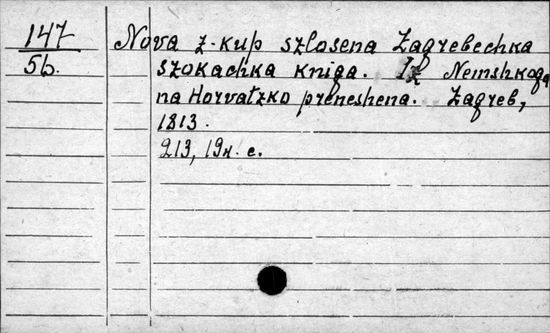 147
56.
Nova z-kup szlosena Zagrebechka
szokachka kniga. Iz Nemshkoga
na Horvatzko preneshena. Zagreb,
1813.
213, 19н. с.